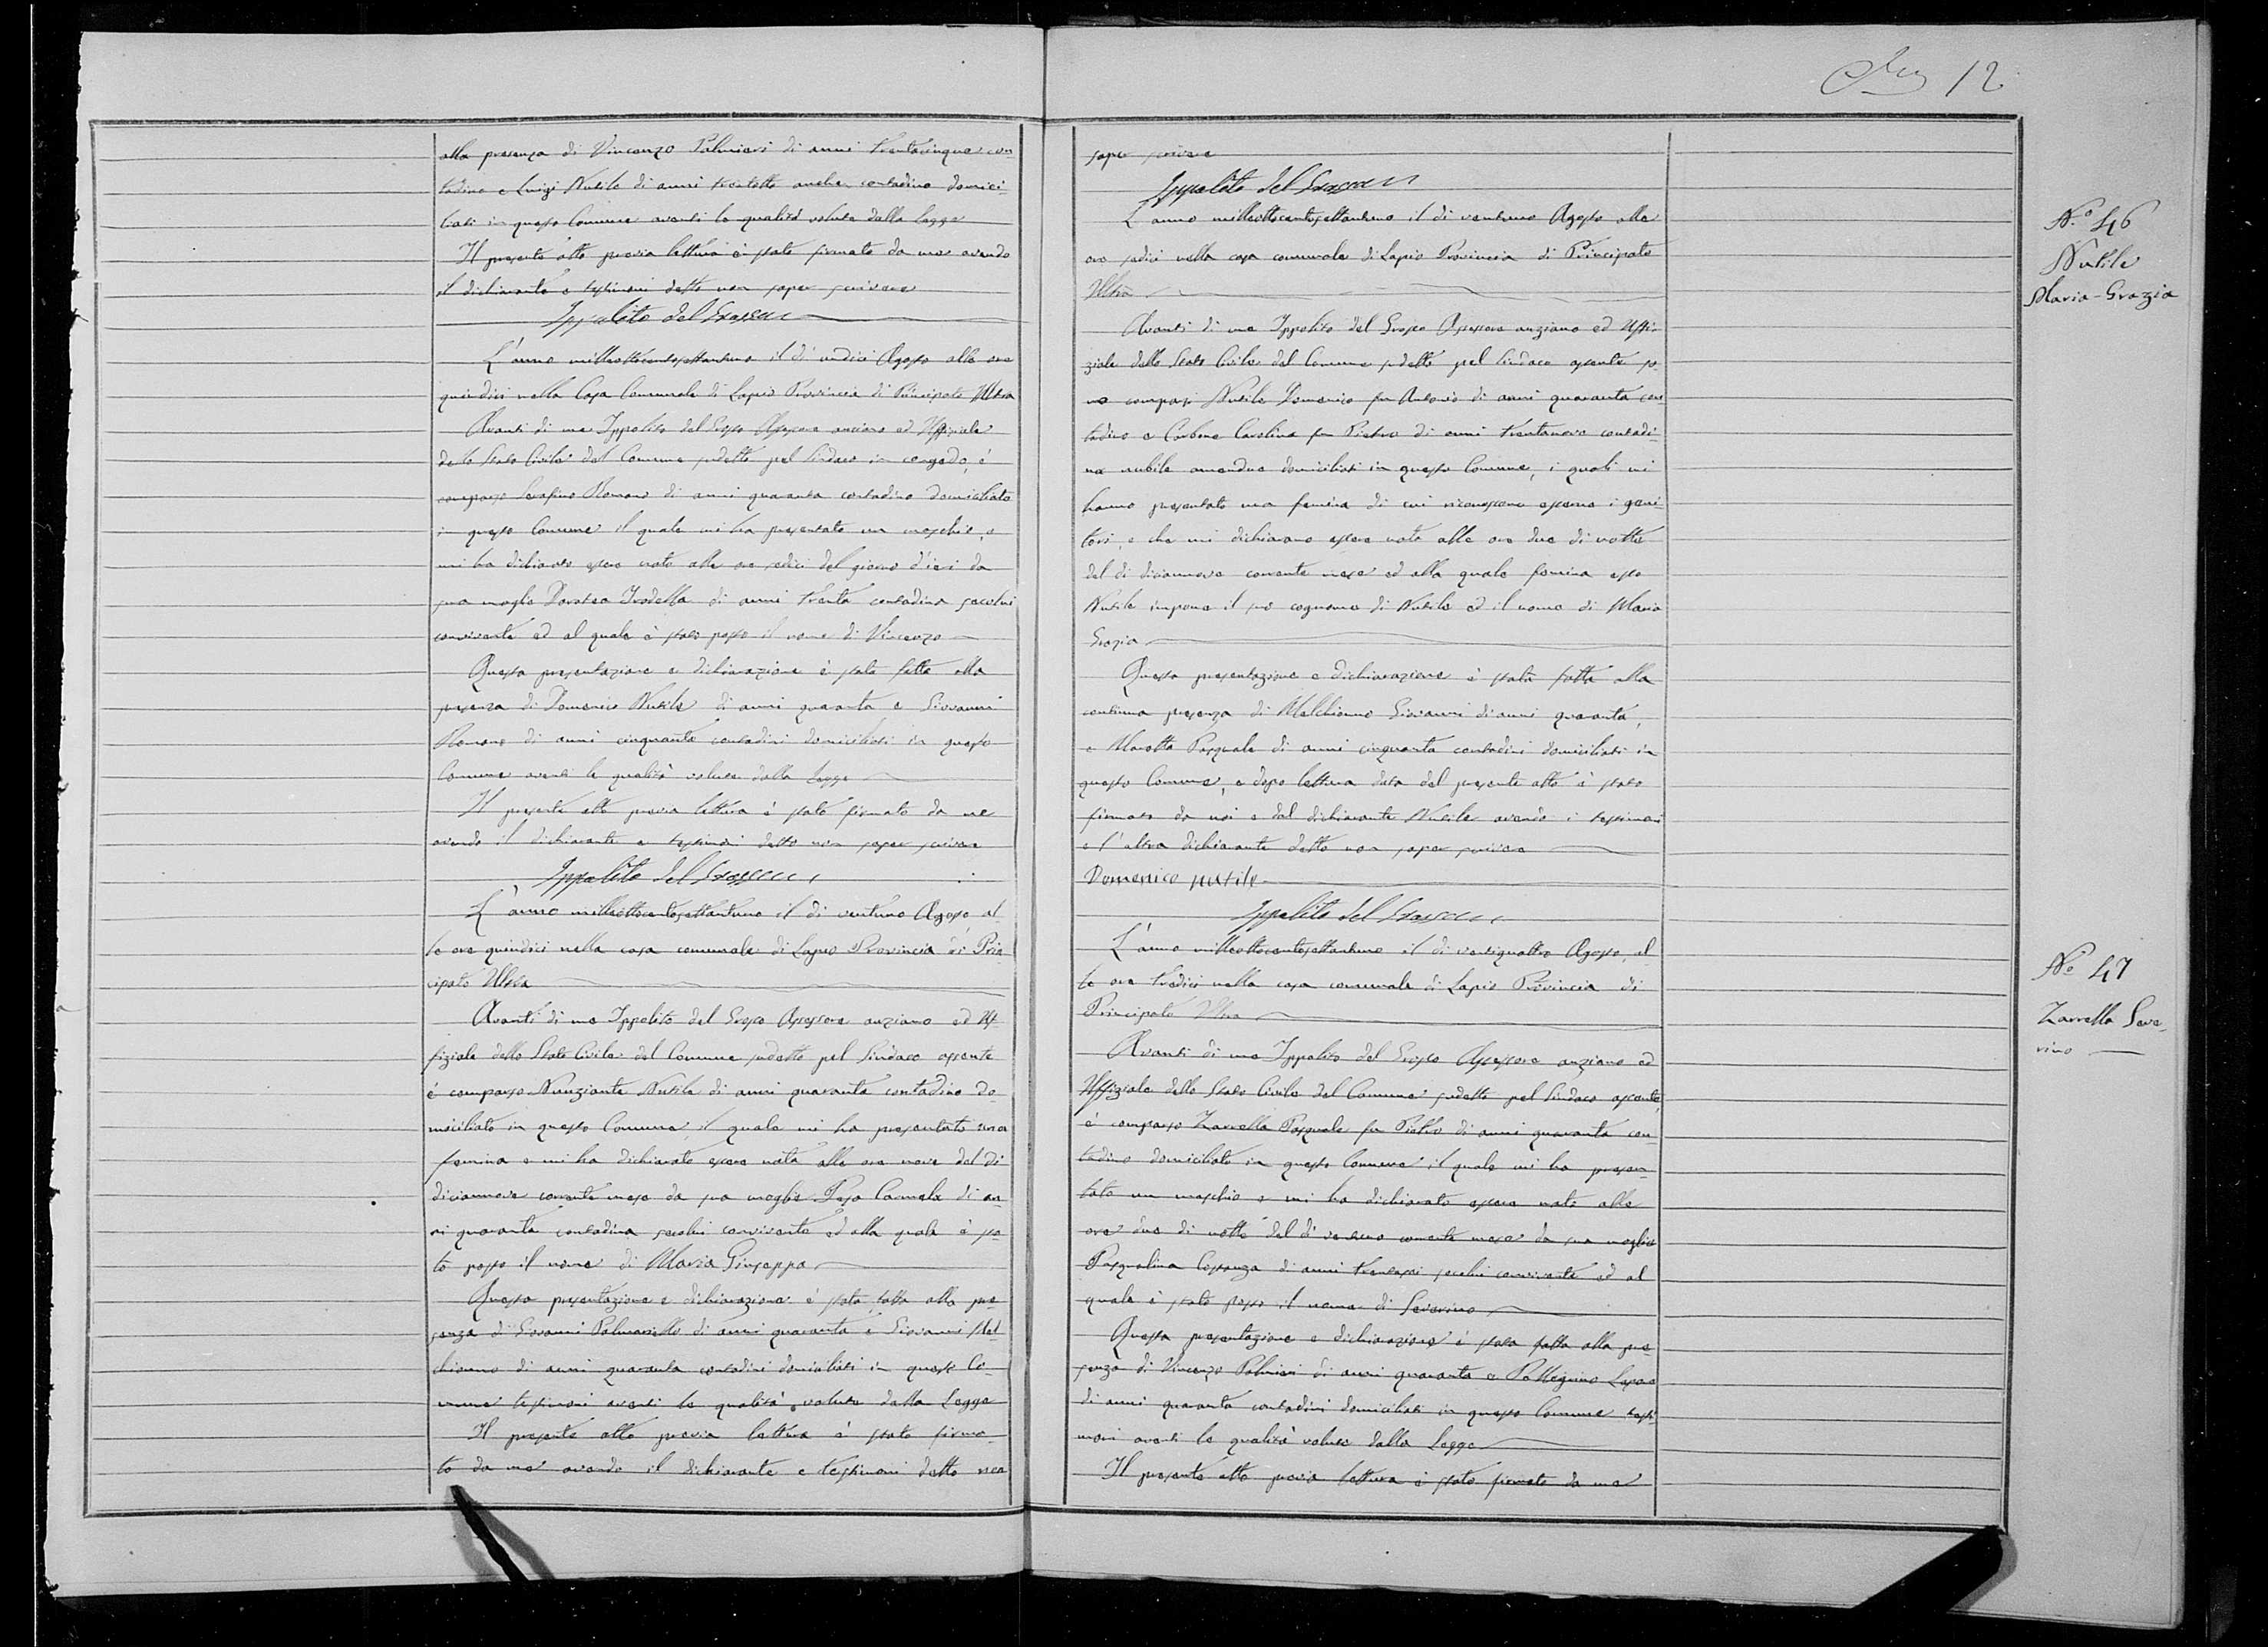 alla presenza di Vincenzo Palmieri di anni trentacinque con-
tadino e Luigi Nutile di anni trentotto anche contadino domici-
liati in questo Comune aventi le qualità volute dalla Legge
Il presente atto previa lettura è stato firmato da me avendo
il dichiarante e testimoni detto non saper scrivere
Ippolito del Grosso
L'anno milleottocentosettantuno il dì undici Agosto alle ore
quindici nella Casa Comunale di Lapio Provincia di Principato Ultra
Avanti di me Ippolito del Grosso Assessore anziano ed Uffiziale
dello Stato Civile del Comune sudetto pel Sindaco in congedo, è
comparso Serafino Romano di anni quaranta contadino domiciliato
in questo Comune il quale mi ha presentato un maschio, e
mi ha dichiarato essere nato alle ore sedici del giorno d'ieri da
sua moglie Dorotea di anni trenta contadina secolui
convivente ed al quale è stato posto il nome di Vincenzo
Questa presentazione e dichiarazione è stata fatta alla
presenza di Domenico Nutile di anni quaranta e Giovanni
Romano di anni cinquanta contadini domiciliati in questo
Comune aventi le qualità volute dalla Legge
Il presente atto previa lettura è stato firmato da me
avendo il dichiarante e testimoni detto non saper scrivere
Ippolito del Grosso
L'anno milleottocentosettantuno il dì ventuno Agosto, al-
le ore quindici nella casa comunale di Lapio Provincia di Prin-
cipato Ultra
Avanti di me Ippolito del Grosso Assessore anziano ed Uf-
fiziale dello Stato Civile del Comune sudetto pel Sindaco assente
è comparso Nunziante Nutile di anni quaranta contadino do-
miciliato in questo Comune, il quale mi ha presentato una
femina e mi ha dichiarato essere nata alle ore nove del dì
diciannove corrente mese da sua moglie Carmela di an-
ni quaranta contadina secolui convivente ed alla quale è sta-
to posto il nome di Maria Giuseppa
Questa presentazione e dichiarazione è stata fatta alla pre-
senza di Giovanni Palmariello di anni quaranta e Giovanni Mel-
chionno di anni quaranta contadini domiciliati in questo Co-
mune testimoni aventi le qualità volute dalla Legge
Il presente atto previa lettura è stato firma-
to da me avendo il dichiarante e testimoni detto non
12
saper scrivere
Ippolito del Grosso
L'anno milleottocentosettantuno il dì ventuno Agosto alle
ore sedici nella casa comunale di Lapio Provincia di Principato
Ultra
Avanti di me Ippolito del Grosso Assessore anziano ed Uffi-
ziale dello Stato Civile del Comune sudetto pel Sindaco assente so-
no comparsi Nutile Domenico fu Antonio di anni quaranta con-
tadino e Carbone Carolina fu Pietro di anni trentanove contadi-
na nubile amendue domiciliati in questo Comune, i quali mi
hanno presentato una femina di cui riconoscono esserne i geni-
tori, e che mi dichiarano essere nata alle ore due di notte
del dì diciannove corrente mese ed alla quale femina esso
Nutile impone il suo cognome di Nutile ed il nome di Maria
Grazia
Questa presentazione e dichiarazione è stata fatta alla
continua presenza di Melchionno Giovanni di anni quaranta,
e Marotta Pasquale di anni cinquanta contadini domiciliati in
questo Comune, e dopo lettura data del presente atto è stato
firmato da noi e dal dichiarante Nutile avendo i testimoni
e l'altra dichiarante detto non saper scrivere
Domenico nutile
Ippolito del Grosso
L'anno milleottocentosettantuno il dì ventiquattro Agosto, al-
le ore tredici nella casa comunale di Lapio Provincia di
Principato Ultra
Avanti di me Ippolito del Grosso Assessore anziano ed
Uffiziale dello Stato Civile del Comune sudetto pel Sindaco assente,
è comparso Zarrella Pasquale fu Pietro di anni quaranta con-
tadino domiciliato in questo Comune il quale mi ha presen-
tato un maschio e mi ha dichiarato essere nato alle
ore due di notte del dì ventuno corrente mese da sua moglie
Pasqualina Costanza di anni trentasei secolui convivente ed al
quale è stato posto il nome di Severino
Questa presentazione e dichiarazione è stata fatta alla pre-
senza di Vincenzo Palmieri di anni quaranta e Pellegrino
di anni quaranta contadini domiciliati in questo Comune testi-
moni aventi le qualità volute dalla Legge
Il presente atto previa lettura è stato firmato da me
N.º 46
Nutile
Maria-Grazia
Nº 47
Zarrella Seve-
rino